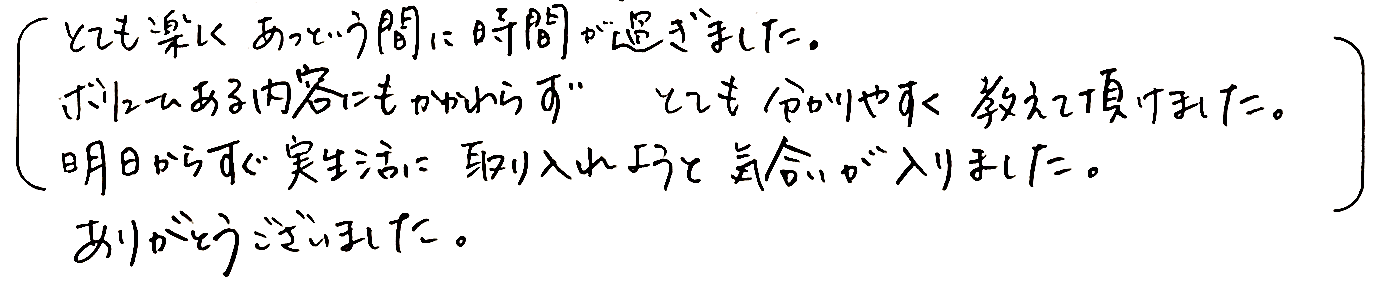 とても楽しく あっという間に時間が過ぎました。
ボリュームある内容にもかかわらず とても分かりやすく 教えて頂けました。
明日からすぐ実生活に 取り入れようと気合いが入りました。
ありがとうございました。